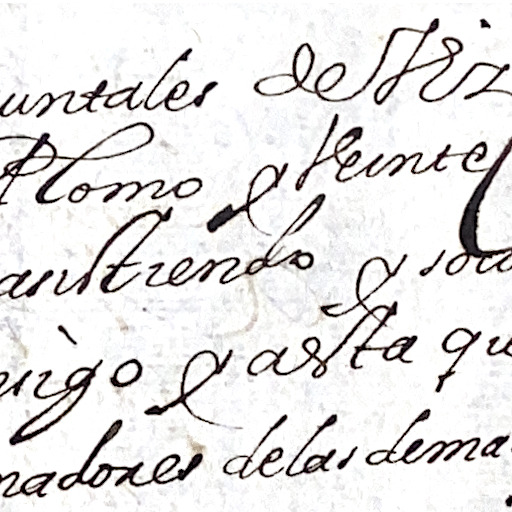 untales de Viz
Plomo y Veinte
asistiendo y soco
migo y asta qu
nadores de las dema